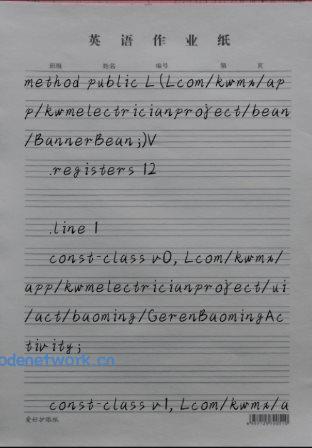 英 语 作 业 纸
班级 姓名 编号 第 页
method public L(Lcom/kwmx/ap
p/kwmelectricianproject/bean
/BannerBean;)V
.registers 12
.line 1
const-class v0, Lcom/kwmx/
app/kwmelectricianproject/ui
/act/baoming/GerenBaomingAc
tivity;
odenetwork.cn
const-class v1, Lcom/kwmx/a
爱好护眼纸